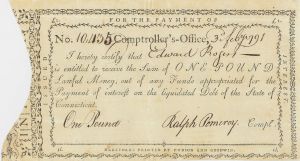 FOR THE PAYMENT OF
No. 10435 Comptroller's-Office, 3d feby 1791
I hereby certify that Edward Bogert
is entitled to receive the Sum of ONE POUND
Lawful Money, out of any Funds appropriated for the
Payment of interest on the liquidated Debt of the State of
Connecticut.
One Pound Ralph Pomeroy Compt.
HARTFORD: PRINTED BY HUDSON AND GOODWIN.